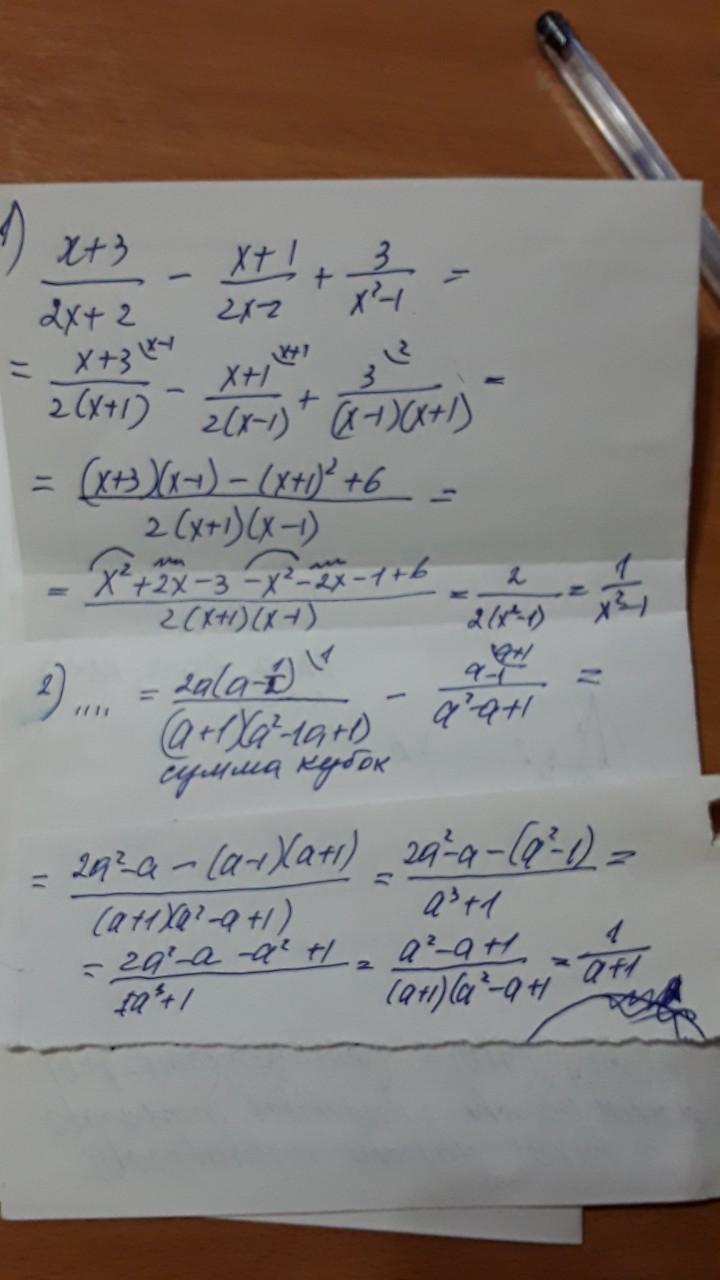 1) (x+3)/(2x+2) - (x+1)/(2x-2) + 3/(x²-1) =
= (x+3 \x-1)/(2(x+1)) - (x+1 \x+1)/(2(x-1)) + (3 \2)/((x-1)(x+1)) =
= ((x+3)(x-1) - (x+1)² + 6)/(2(x+1)(x-1)) =
= (x²+2x-3-x²-2x-1+6)/(2(x+1)(x-1)) = 2/(2(x²-1)) = 1/(x²-1)
2) .... = (2a(a-1) \1)/((a+1)(a²-1a+1)) - (a-1 \a+1)/(a²-a+1) =
сумма кубок
= (2a²-a-(a-1)(a+1))/((a+1)(a²-a+1)) = (2a²-a-(a²-1))/(a³+1) =
= (2a²-a-a²+1)/(a³+1) = (a²-a+1)/((a+1)(a²-a+1) = 1/(a+1)